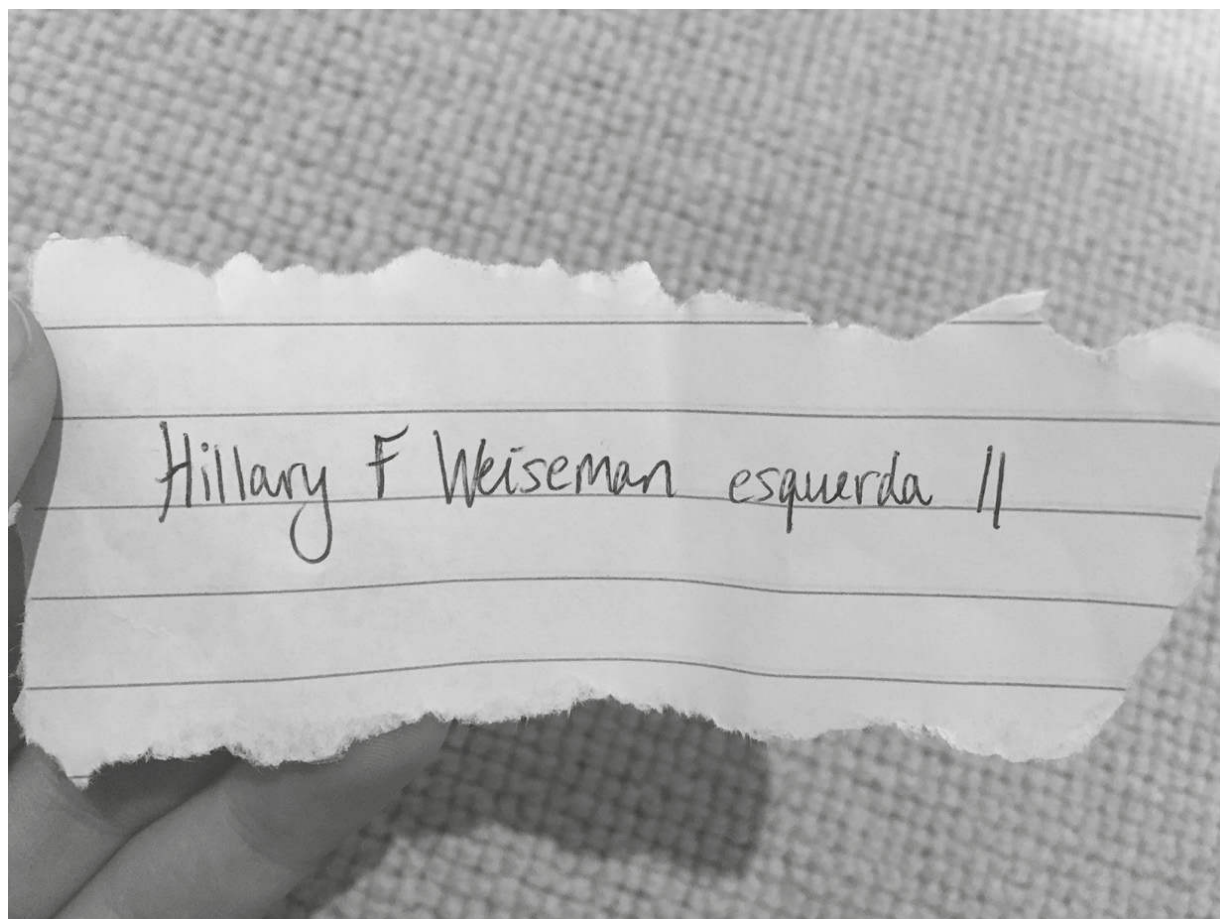 Hillary F Weiseman esquerda 11